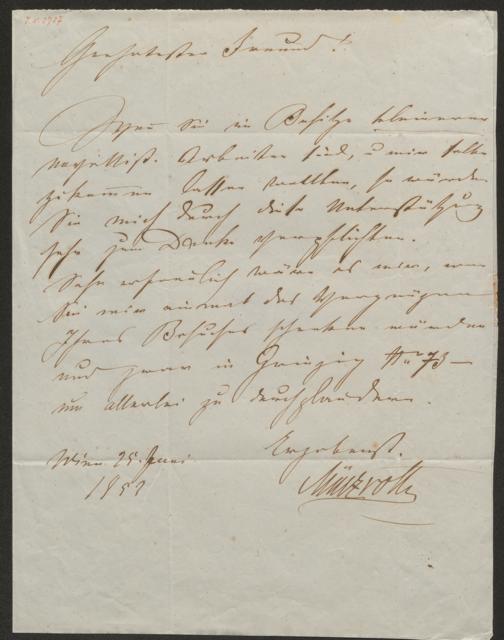 Geehrtester Freund!
Wenn Sie im Besitze kleinerer
novellist. Arbeiten sind, u mir selbe
zukommen lassen wollten, so würden
Sie mich durch diese Unterstützung
sehr zum Danke verpflichten.
Sehr erfreulich wäre es mir, wenn
Sie mir einmal das Vergnügen
Ihres Besuches schenken würden
und zwar in Grinzing No 73 –
um allerlei zu durchplaudern.
Ergebenst.
Wien 25. Juni
185
Märzroth